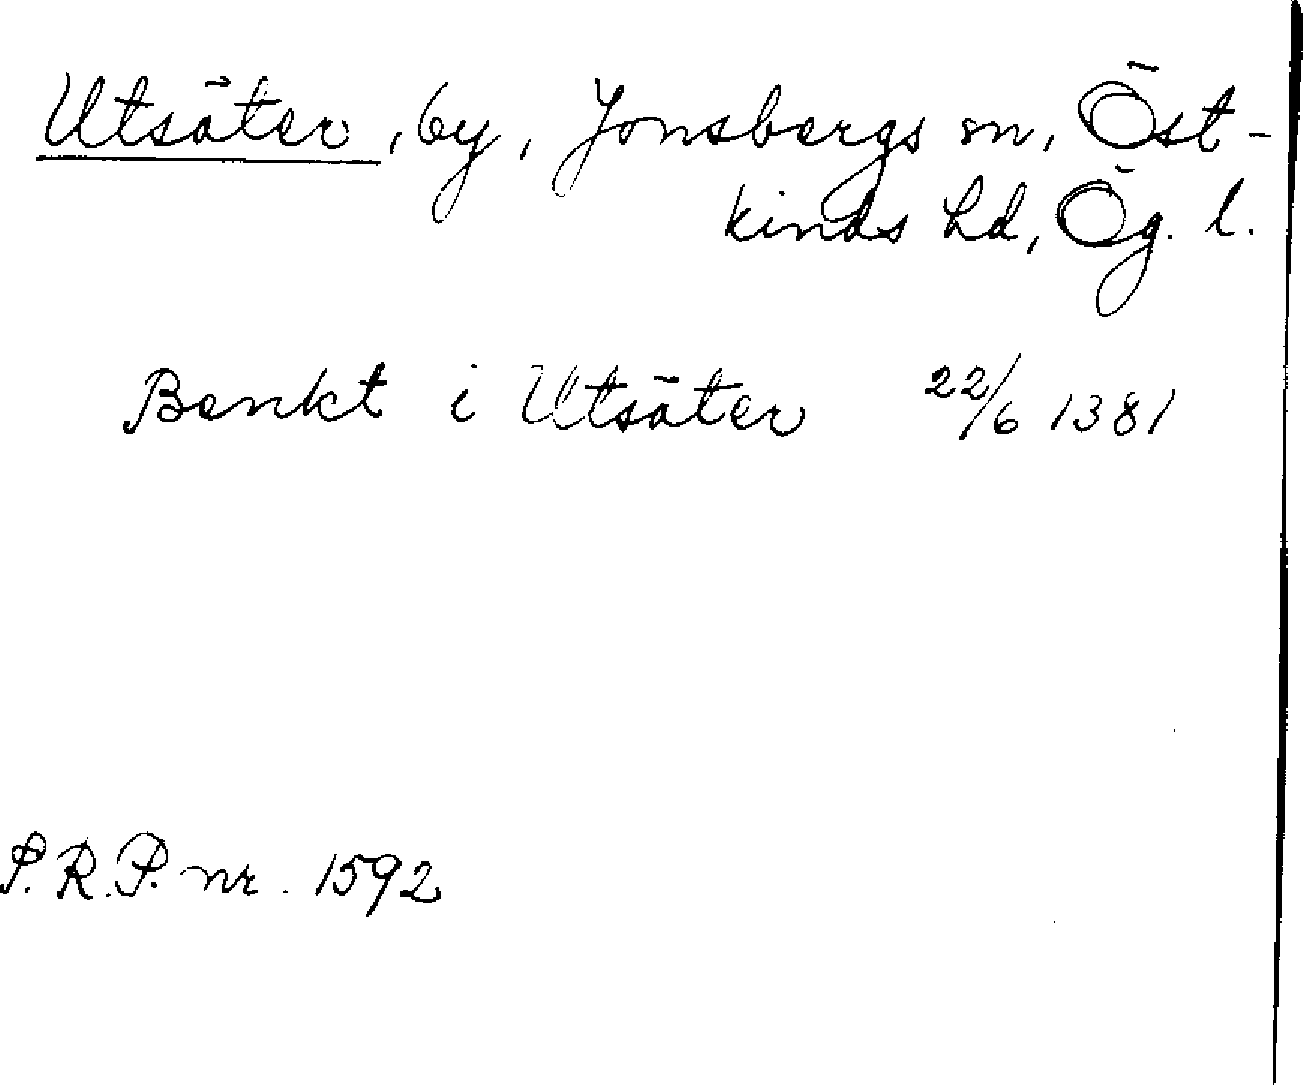 Utsäter, by, Jonsbergs sn, Öst-
kinds hd, Ög. l.
Benkt i Utsäter 22/6 1381
P.R.P. nr. 1592